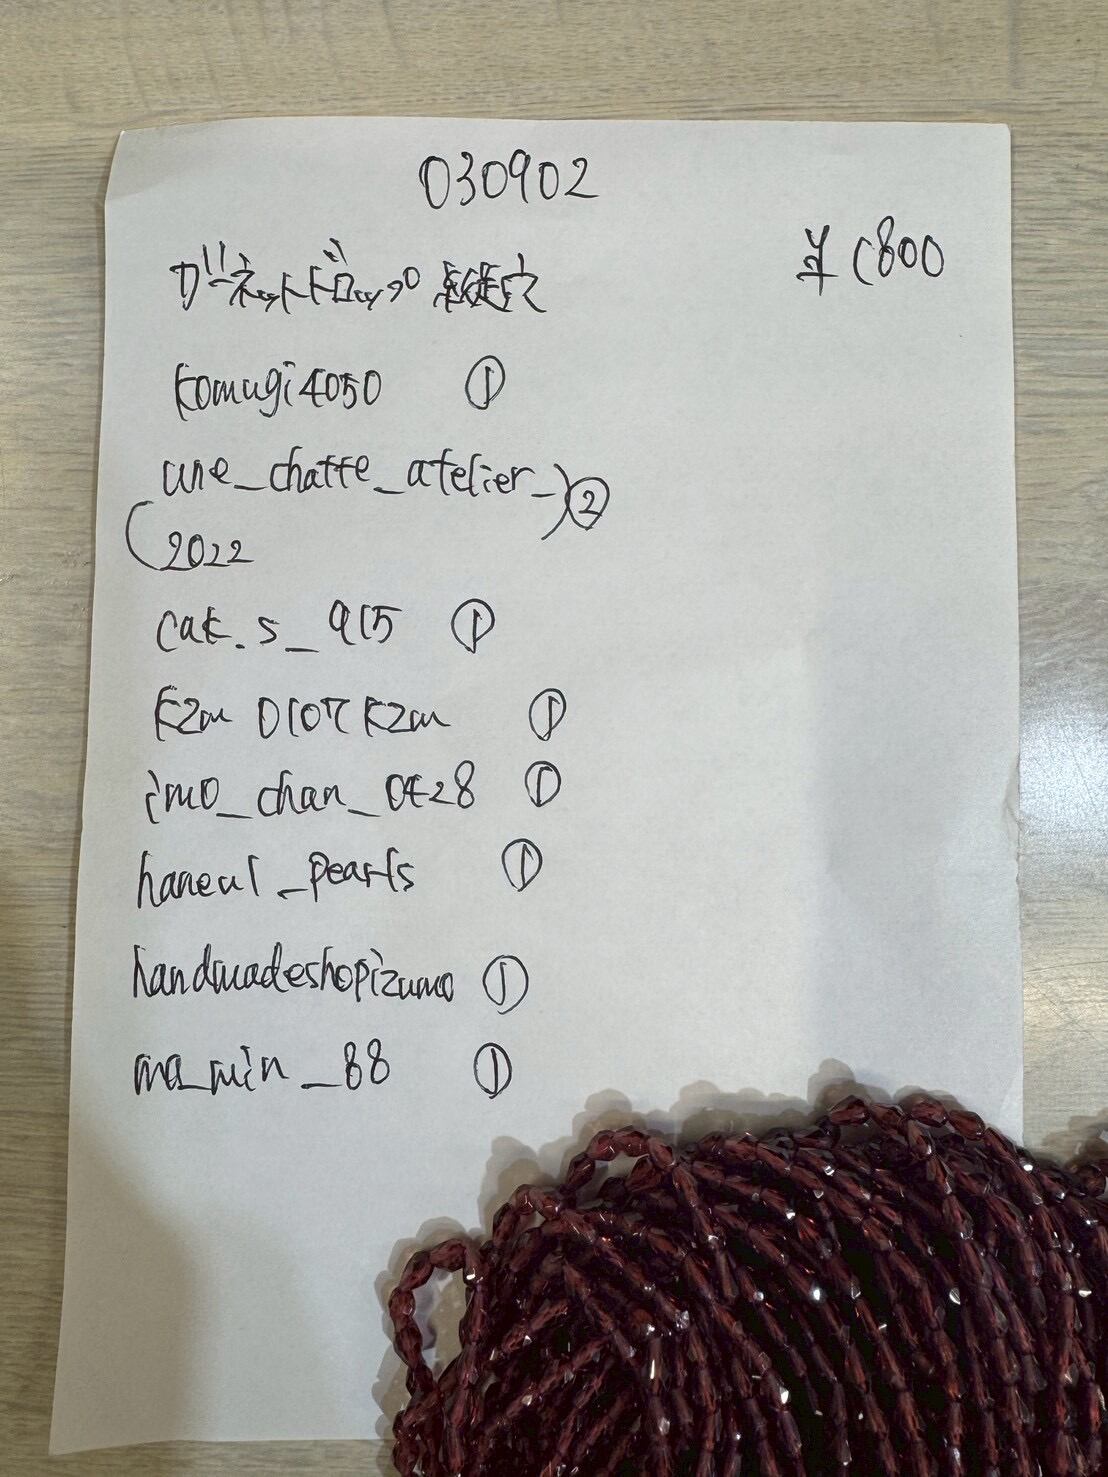 030902
ガーネットドロップ 縦穴
¥1800
komugi4050 ①
une_chatte_atelier_
2022 ②
cat.s_915 ①
kzm0107kzm ①
imo_chan_0428 ①
haneul_pearls ①
handmadeshopizumo ①
ma_min_88 ①